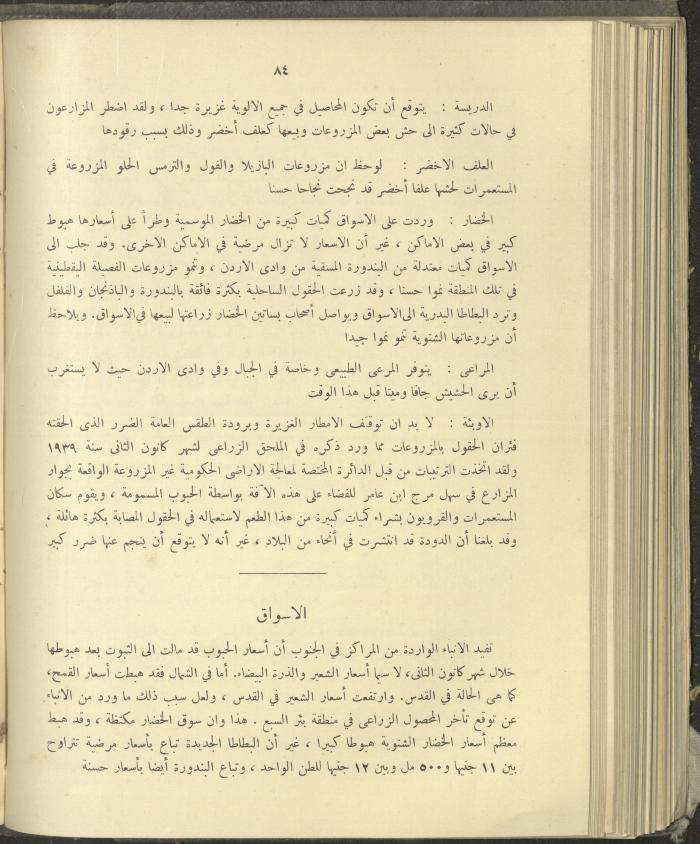 ٨٤
الدريسة : يتوقع أن تكون المحاصيل في جميع الالوية غزيرة جدا ، ولقد اضطر المزارعون
في حالات كثيرة الى حش بعض المزروعات وبيعها كعلف أخضر وذلك بسبب رقودها
العلف الاخضر : لوحظ ان مزروعات البازيلا والفول والترمس الحلو المزروعة في
المستعمرات لحشها علفا أخضر قد نجحت نجاحا حسنا
الخضار : وردت على الاسواق كميات كبيرة من الخضار الموسمية وطرأ على أسعارها هبوط
كبير في بعض الاماكن ، غير أن الاسعار لا تزال مرضية في الاماكن الاخرى. وقد جلب الى
الاسواق كميات معتدلة من البندورة المسقية من وادى الاردن ، وتنمو مزروعات الفصيلة اليقطينية
في تلك المنطقة نموا حسنا ، وقد زرعت الحقول الساحلية بكثرة فائقة بالبندورة والباذنجان والفلفل
وترد البطاطا البدرية الى الاسواق ويواصل أصحاب بساتين الخضار زراعتها لبيعها في الاسواق. ويلاحظ
أن مزروعاتها الشتوية تنمو نموا جيدا
المراعى : يتوفر المرعى الطبيعى وخاصة في الجبال وفي وادى الاردن حيث لا يستغرب
أن يرى الحشيش جافا وميتا قبل هذا الوقت
الاوبئة : لا بد ان توقف الامطار الغزيرة وبرودة الطقس العامة الضرر الذى الحقته
فئران الحقول بالمزروعات مما ورد ذكره في الملحق الزراعى لشهر كانون الثانى سنة ١٩٣٩
ولقد اتخذت الترتيبات من قبل الدائرة المختصة لمعالجة الاراضى الحكومية غير المزروعة الواقعة بجوار
المزارع في سهل مرج ابن عامر للقضاء على هذه الآفة بواسطة الحبوب المسمومة ، ويقوم سكان
المستعمرات والقرويون بشراء كميات كبيرة من هذا الطعم لاستعماله في الحقول المصابة بكثرة هائلة ،
وقد بلغنا أن الدودة قد انتشرت في أنحاء من البلاد ، غير أنه لا يتوقع أن ينجم عنها ضرر كبير
الاسواق
تفيد الانباء الواردة من المراكز في الجنوب أن أسعار الحبوب قد مالت الى الثبوت بعد هبوطها
خلال شهر كانون الثانى، لا سيما أسعار الشعير والذرة البيضاء. أما في الشمال فقد هبطت أسعار القمح،
كما هى الحالة في القدس. وارتفعت أسعار الشعير في القدس ، ولعل سبب ذلك ما ورد من الانباء
عن توقع تأخر المحصول الزراعى في منطقة بئر السبع . هذا وان سوق الخضار مكتظة ، وقد هبط
معظم أسعار الخضار الشتوية هبوطا كبيرا ، غير أن البطاطا الجديدة تباع بأسعار مرضية تتراوح
بين ١١ جنيها و٥٠٠ مل وبين ١٢ جنيها للطن الواحد ، وتباع البندورة أيضا بأسعار حسنة